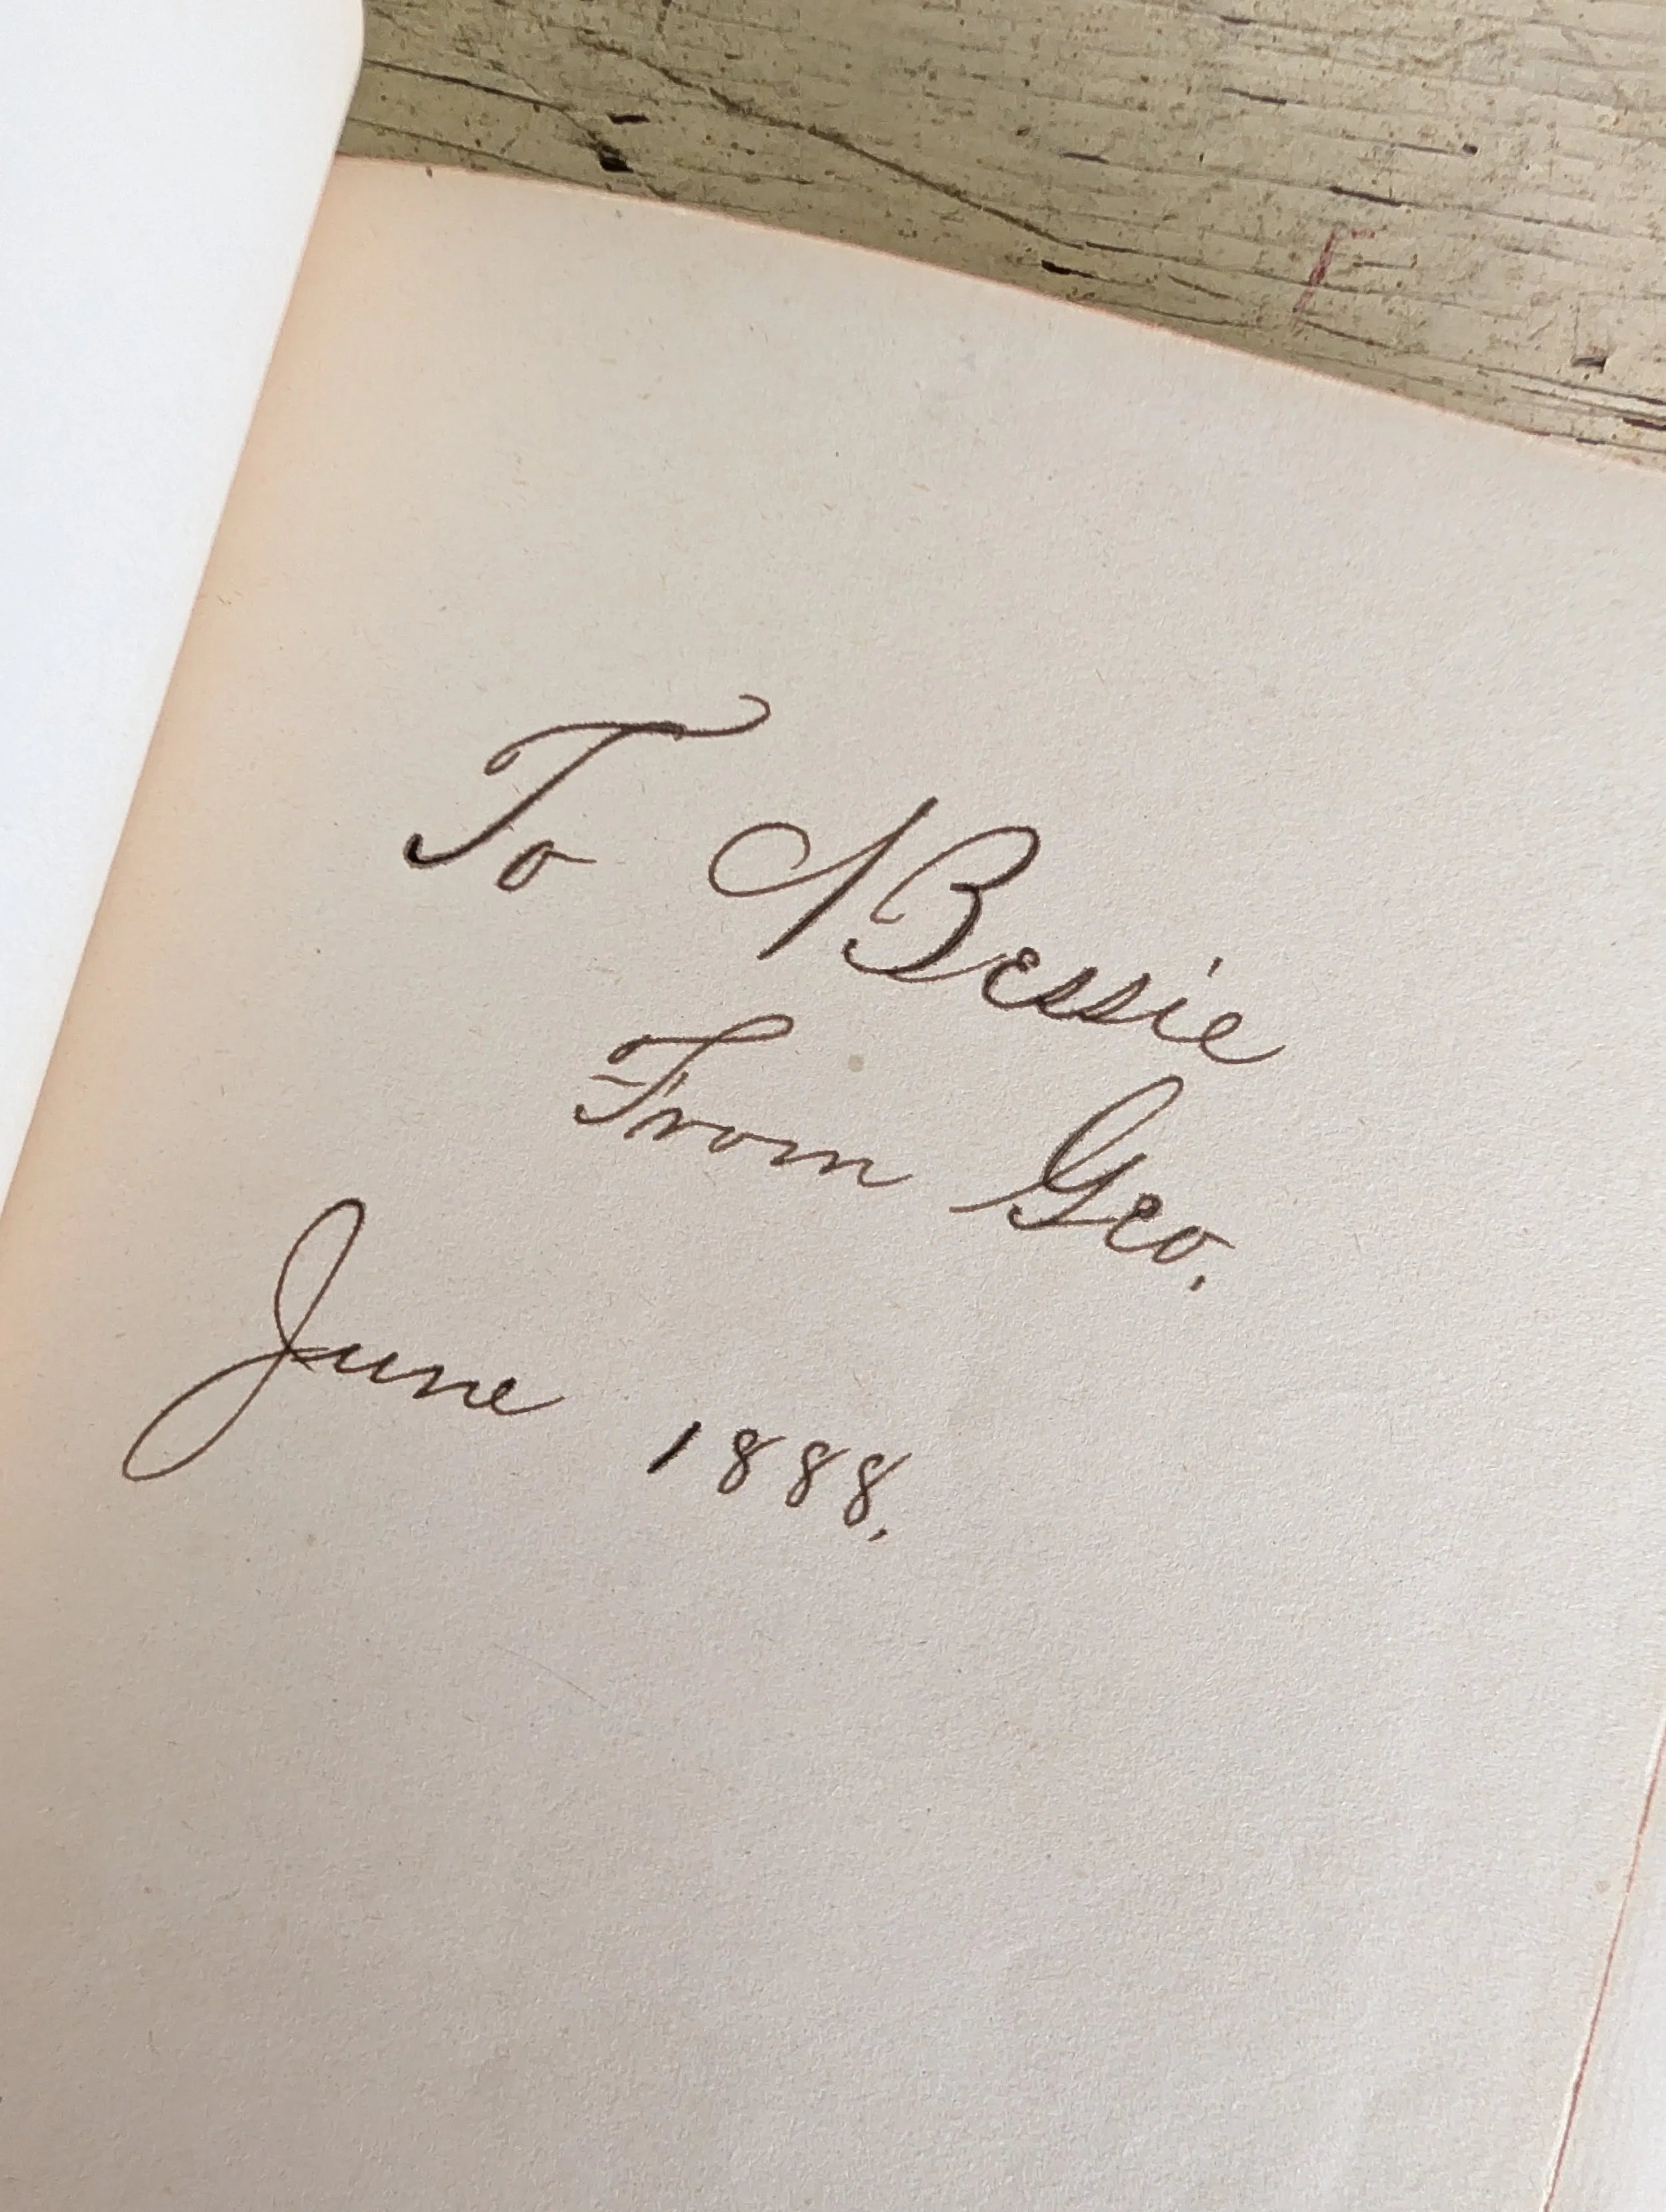 To Bessie
From Geo.
June 1888.